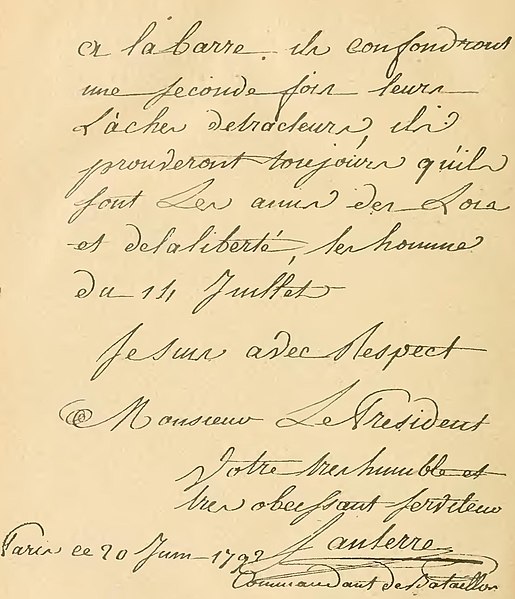 a la barre. ils confondront
une seconde fois leurs
Lâches detracteurs, ils
prouveront toujours qu'ils
sont Les amis des Lois
et de la liberté, les homme
du 14 Juillet
Je suis avec Respect
Monsieur Le President
Votre tres humble et
tres obeissant serviteur
Paris ce 20 Juin 1792 Santerre
Commandant de Bataillon